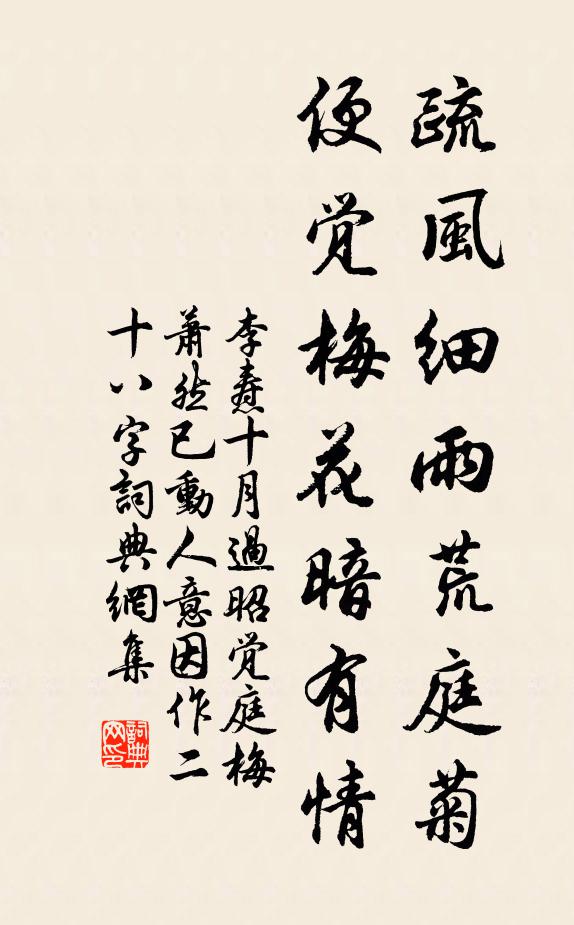 疏風細雨荒庭菊
便覚梅花暗有情
李焘十月過昭覚庭梅
蕭然已動人意因作二
十八字詞典網集
詞典
网印